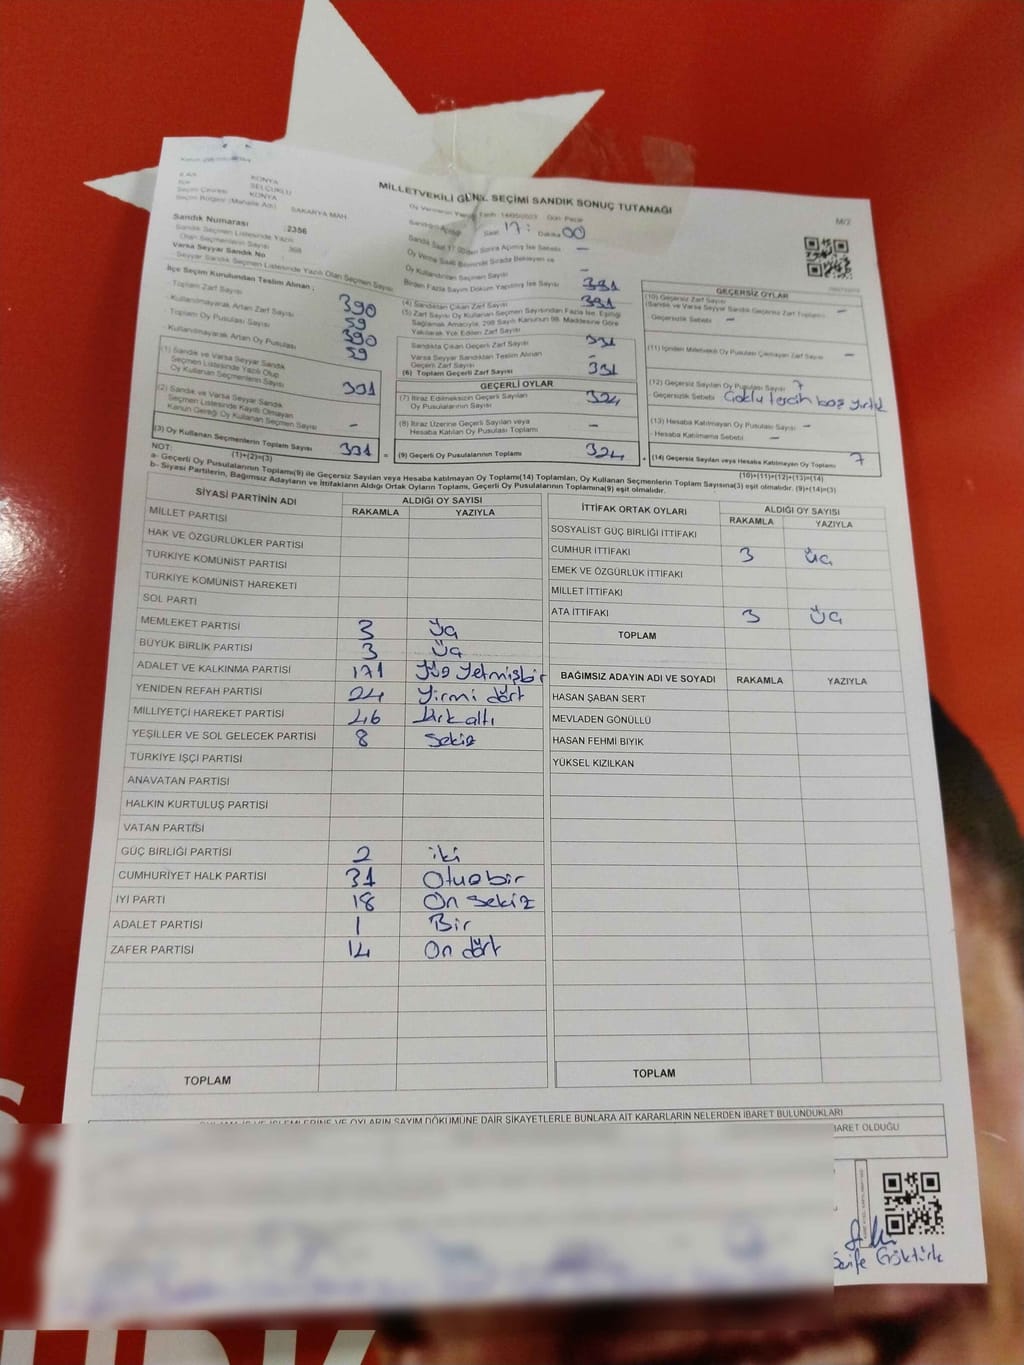 M/2
İLİ KONYA
SELÇUKLU
Seçim Çevresi KONYA
Seçim Bölgesi (Mahalle Adı) SAKARYA MAH.
Sandık Numarası :2356
Sandık Seçmen Listesinde Yazılı
Olan Seçmenlerin Sayısı
Varsa Seyyar Sandık No :
Seyyar Sandık Seçmen Listesinde Yazılı Olan Seçmen Sayısı
İlçe Seçim Kurulundan Teslim Alınan ;
Toplam Zarf Sayısı 390
Kullanılmayarak Artan Zarf Sayısı 59
Toplam Oy Pusulası Sayısı 390
Kullanılmayarak Artan Oy Pusulası 59
(1) Sandık ve Varsa Seyyar Sandık
Seçmen Listesinde Yazılı Olup
Oy Kullanan Seçmenlerin Sayısı 331
(2) Sandık ve Varsa Seyyar Sandık
Seçmen Listesinde Kayıtlı Olmayan
Kanun Gereği Oy Kullanan Seçmen Sayısı -
(3) Oy Kullanan Seçmenlerin Toplam Sayısı 331 =
(1)+(2)=(3)
MİLLETVEKİLİ GENEL SEÇİMİ SANDIK SONUÇ TUTANAĞI
Oy Vermenin Yapıldığı Tarih 14/05/2023 Gün: Pazar
Sandığın Açıldığı Saat 17: Dakika 00
Sandık Saat 17.00'den Sonra Açılmış İse Sebebi -
Oy Verme Saati Bitiminde Sırada Bekleyen ve
Oy Kullandırılan Seçmen Sayısı -
Birden Fazla Sayım Döküm Yapılmış İse Sayısı 331
(4) Sandıktan Çıkan Zarf Sayısı 331
(5) Zarf Sayısı Oy Kullanan Seçmen Sayısından Fazla İse, Eşitliği
Sağlamak Amacıyla, 298 Sayılı Kanunun 98. Maddesine Göre
Yakılarak Yok Edilen Zarf Sayısı
Sandıkta Çıkan Geçerli Zarf Sayısı 331
Varsa Seyyar Sandıktan Teslim Alınan
Geçerli Zarf Sayısı -
(6) Toplam Geçerli Zarf Sayısı 331
GEÇERLİ OYLAR
(7) İtiraz Edilmeksizin Geçerli Sayılan
Oy Pusulalarının Sayısı 324
(8) İtiraz Üzerine Geçerli Sayılan veya
Hesaba Katılan Oy Pusulası Toplamı -
(9) Geçerli Oy Pusulalarının Toplamı 324 +
GEÇERSİZ OYLAR
(10) Geçersiz Zarf Sayısı
(Sandık ve Varsa Seyyar Sandık Geçersiz Zarf Toplamı) -
Geçersizlik Sebebi -
(11) İçinden Milletvekili Oy Pusulası Çıkmayan Zarf Sayısı -
(12) Geçersiz Sayılan Oy Pusulası Sayısı 7
Geçersizlik Sebebi Çoklu tercih boş yırtık
(13) Hesaba Katılmayan Oy Pusulası Sayısı -
Hesaba Katılmama Sebebi -
(14) Geçersiz Sayılan veya Hesaba Katılmayan Oy Toplamı 7
(10)+(11)+(12)+(13)=(14)
NOT:
a- Geçerli Oy Pusulalarının Toplamı(9) ile Geçersiz Sayılan veya Hesaba Katılmayan Oy Toplamı(14) Toplamları, Oy Kullanan Seçmenlerin Toplam Sayısına(3) eşit olmalıdır. (9)+(14)=(3)
b- Siyasi Partilerin, Bağımsız Adayların ve İttifakların Aldığı Ortak Oyların Toplamı, Geçerli Oy Pusulalarının Toplamına(9) eşit olmalıdır.
SİYASİ PARTİNİN ADI ALDIĞI OY SAYISI
RAKAMLA YAZIYLA
MİLLET PARTİSİ
HAK VE ÖZGÜRLÜKLER PARTİSİ
TÜRKİYE KOMÜNİST PARTİSİ
TÜRKİYE KOMÜNİST HAREKETİ
SOL PARTİ
MEMLEKET PARTİSİ 3 Üç
BÜYÜK BİRLİK PARTİSİ 3 Üç
ADALET VE KALKINMA PARTİSİ 171 Yüz Yetmişbir
YENİDEN REFAH PARTİSİ 24 Yirmi dört
MİLLİYETÇİ HAREKET PARTİSİ 46 kırk altı
YEŞİLLER VE SOL GELECEK PARTİSİ 8 sekiz
TÜRKİYE İŞÇİ PARTİSİ
ANAVATAN PARTİSİ
HALKIN KURTULUŞ PARTİSİ
VATAN PARTİSİ
GÜÇ BİRLİĞİ PARTİSİ 2 iki
CUMHURİYET HALK PARTİSİ 31 Otuzbir
İYİ PARTİ 18 On sekiz
ADALET PARTİSİ 1 Bir
ZAFER PARTİSİ 14 On dört
TOPLAM
İTTİFAK ORTAK OYLARI ALDIĞI OY SAYISI
RAKAMLA YAZIYLA
SOSYALİST GÜÇ BİRLİĞİ İTTİFAKI
CUMHUR İTTİFAKI 3 üç
EMEK VE ÖZGÜRLÜK İTTİFAKI
MİLLET İTTİFAKI
ATA İTTİFAKI 3 Üç
TOPLAM
BAĞIMSIZ ADAYIN ADI VE SOYADI RAKAMLA YAZIYLA
HASAN ŞABAN SERT
MEVLADEN GÖNÜLLÜ
HASAN FEHMİ BIYIK
YÜKSEL KIZILKAN
TOPLAM
İŞ VE İŞLEMLERİNE VE OYLARIN SAYIM DÖKÜMÜNE DAİR ŞİKAYETLERLE BUNLARA AİT KARARLARIN NELERDEN İBARET BULUNDUKLARI
İBARET OLDUĞU
Göktürk